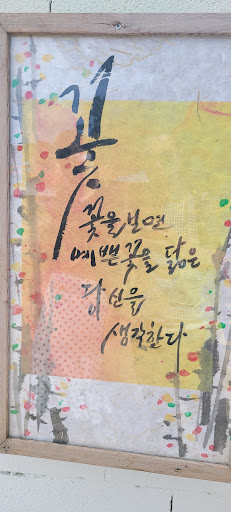 꽃
꽃을 보면
예쁜 꽃을 닮은
당신을
생각한다